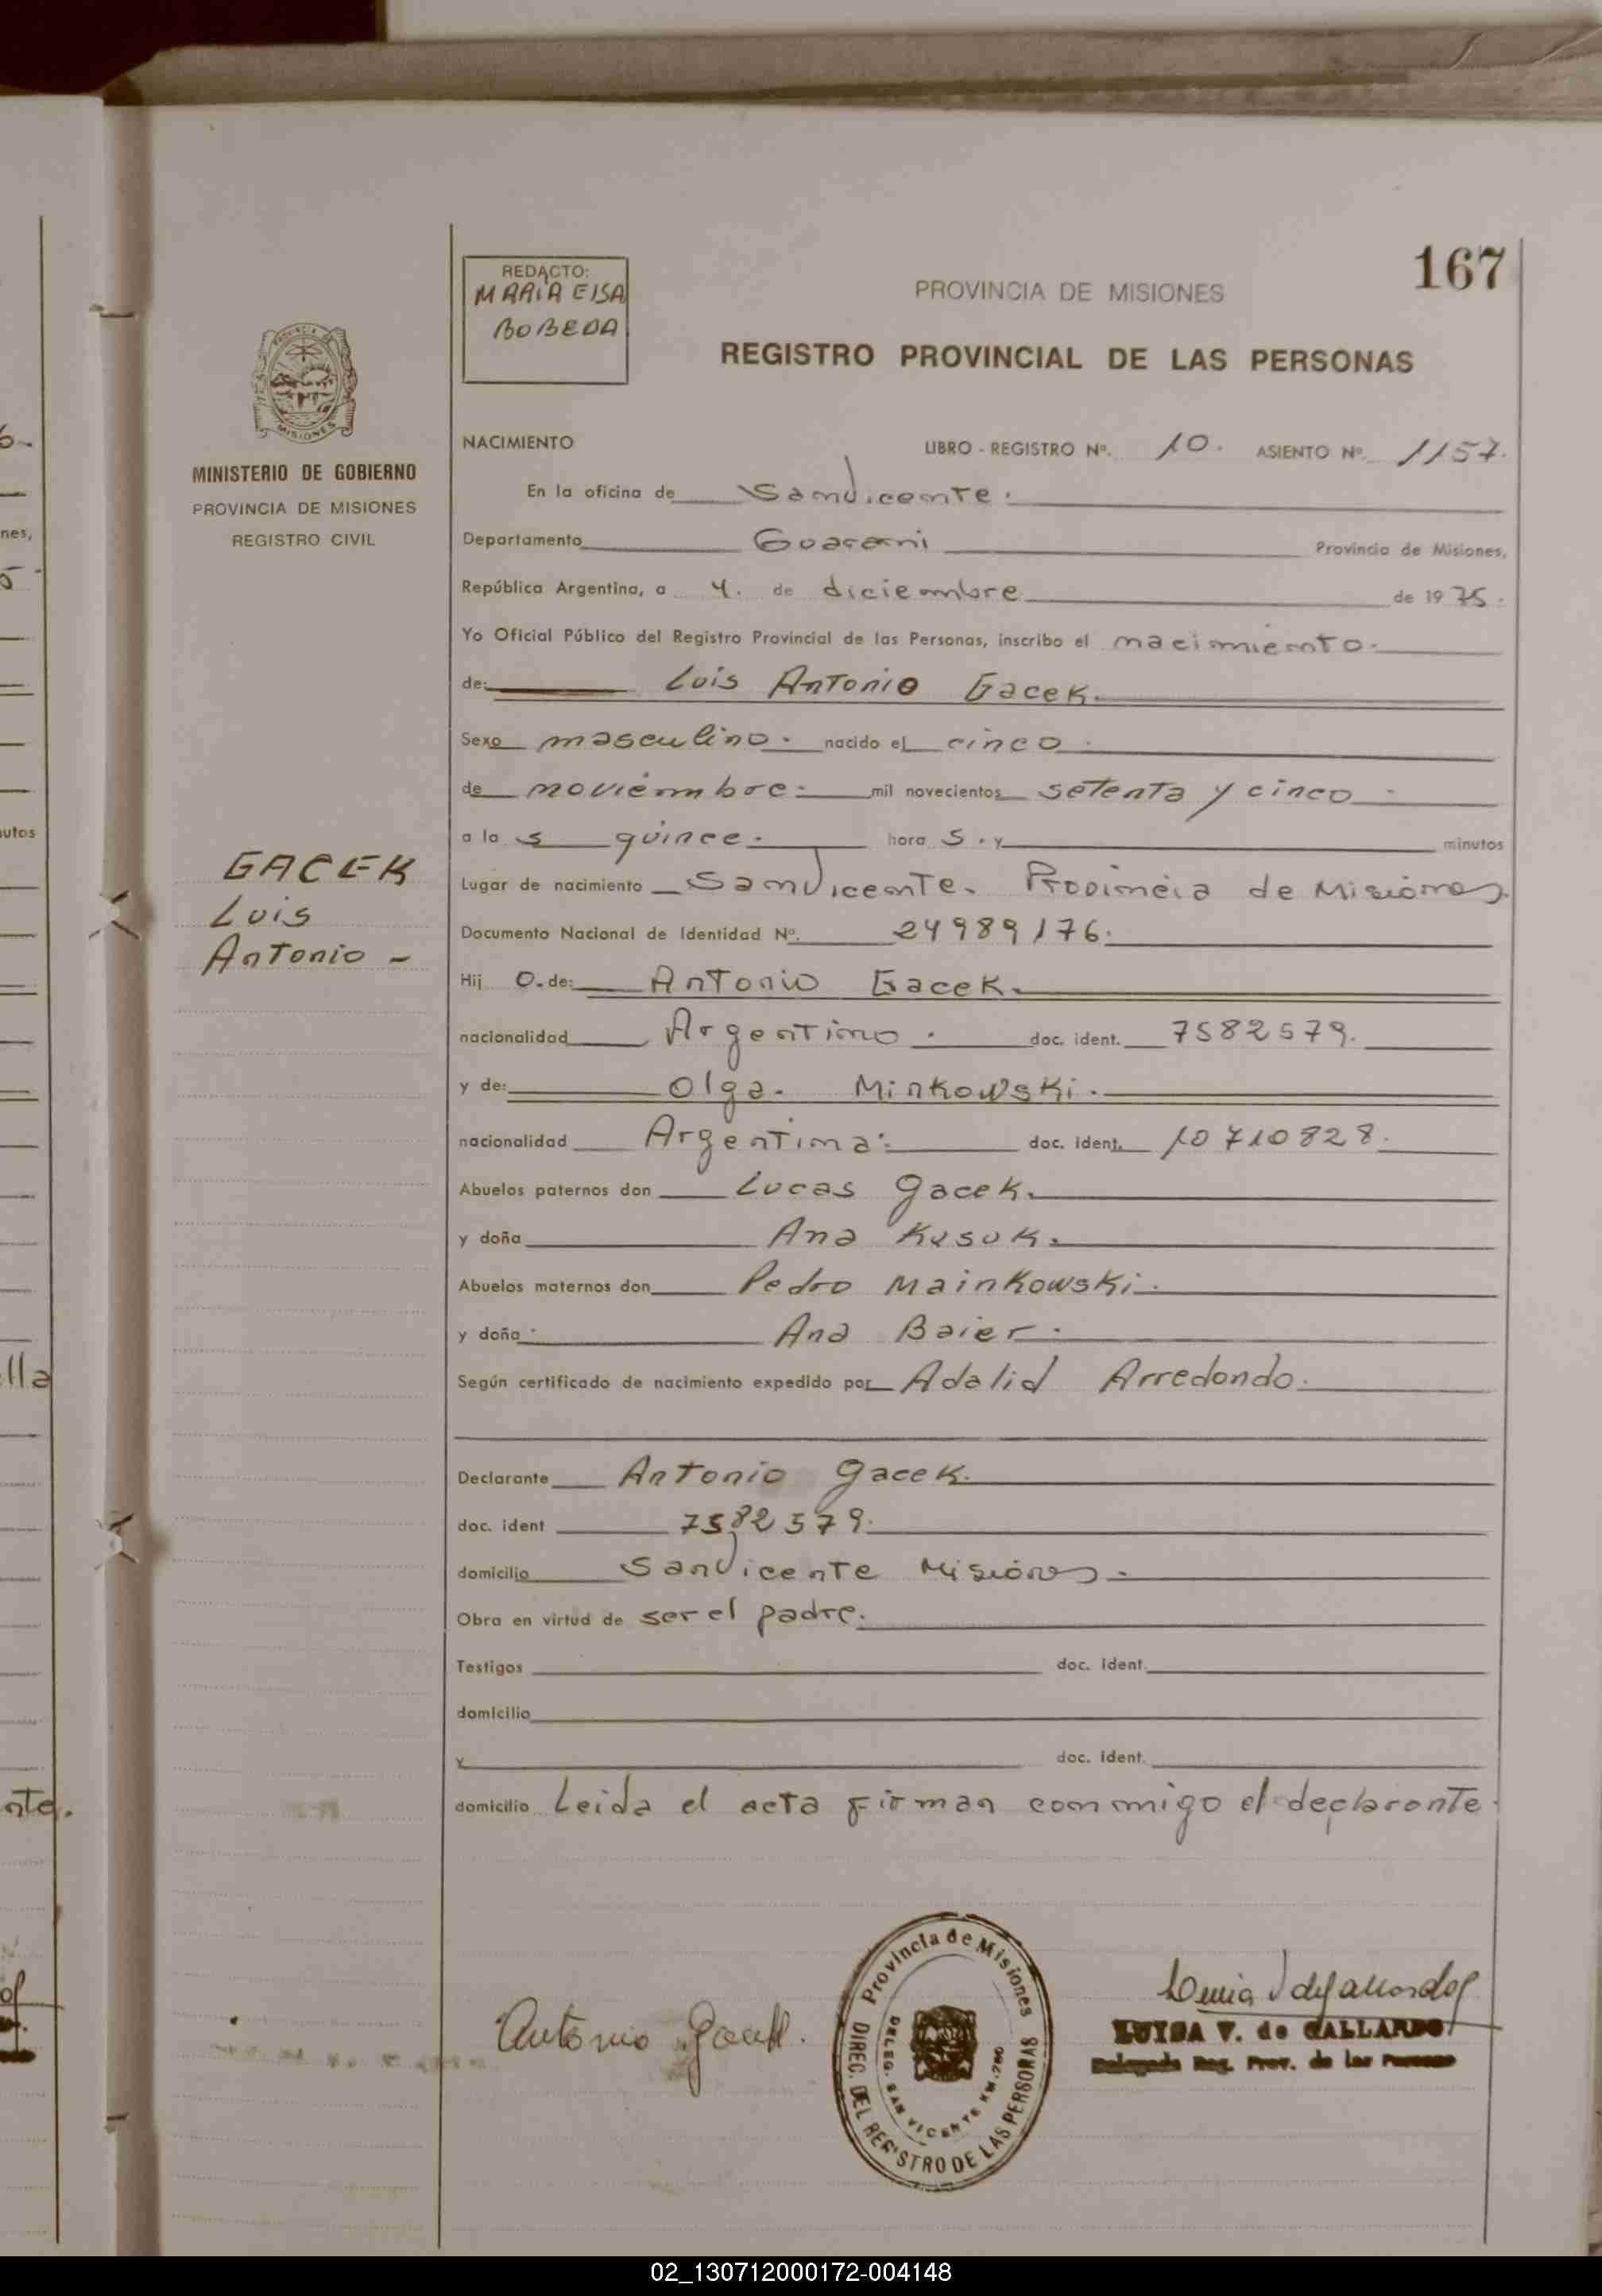 167
REDACTO:
MARIA ELSA
BOBEDA
PROVINCIA DE MISIONES
REGISTRO PROVINCIAL DE LAS PERSONAS
MISIONES
MINISTERIO DE GOBIERNO
PROVINCIA DE MISIONES
REGISTRO CIVIL
GACEK
Luis
Antonio -
NACIMIENTO LIBRO - REGISTRO Nº. 10. ASIENTO Nº. 1157.
En la oficina de San Vicente.
Departamento Guarani Provincia de Misiones,
República Argentina, a 4. de diciembre de 1975.
Yo Oficial Público del Registro Provincial de las Personas, inscribo el nacimiento.
de: Luis Antonio Gacek.
Sexo masculino. nacido el cinco.
de noviembre. mil novecientos setenta y cinco.
a la s quince. hora s. y minutos
Lugar de nacimiento San Vicente. Provincia de Misiones.
Documento Nacional de Identidad Nº. 24989176.
Hij o. de: Antonio Gacek.
nacionalidad Argentino. doc. ident. 7582579.
y de: Olga. Minkowski.
nacionalidad Argentina. doc. ident. 10710828.
Abuelos paternos don Lucas Gacek.
y doña Ana
Abuelos maternos don Pedro Mainkowski.
y doña Ana Baier.
Según certificado de nacimiento expedido por Adalid Arredondo.
Declarante Antonio Gacek.
doc. ident 7582579.
domicilio San Vicente Misiones.
Obra en virtud de ser el padre.
Testigos doc. ident.
domicilio
y doc. ident.
domicilio Leida el acta firman conmigo el declarante.
Antonio
Provincia de Misiones
DIREC. DEL REGISTRO DE LAS PERSONAS
DELEG. SAN VICENTE KM. 280
LUISA V. de GALLARDO
Delegada Reg. Prov. de las Personas
nes,
utos
lla
nte.
02_130712000172-004148